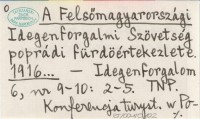 A Felsőmagyarországi
Idegenforgalmi Szövetség
poprádi fürdőértekezlete.
1916... – Idegenforgalom
6, nr 9-10: 2-5. TNP.
Konferencja turyst. w Po-